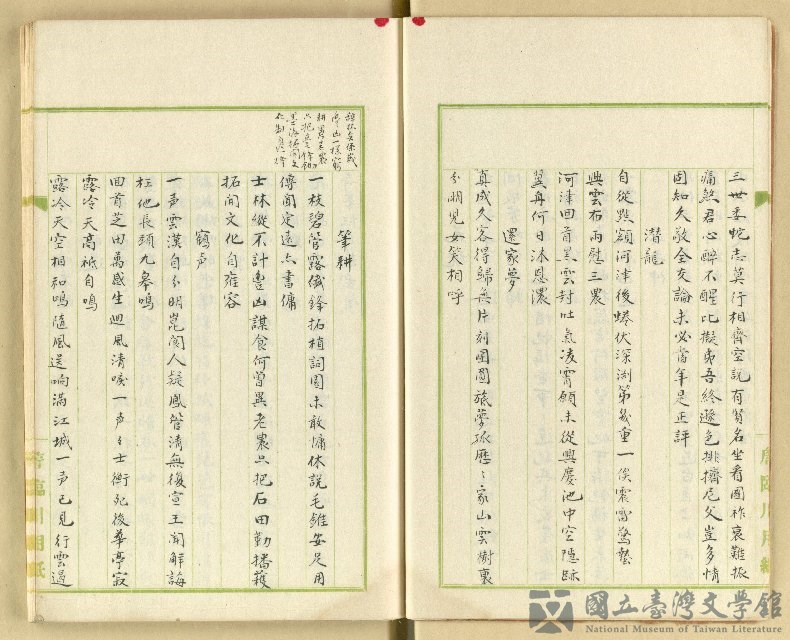 三世委蛇志莫行相齊空說有賢名坐看國祚衰難振
痛煞君心醉不醒比擬夷吾終遜色排擠尼父豈多情
因知久敬全交論未必當年是正評
潛龍
自從點額河津後蟠伏深淵第幾重一俟震雷驚蟄
興雲布雨慰三農
河津回首黑雲封吐氣凌霄願未從興慶池中空隱跡
冀再何日沐恩濃
還家夢
真成久客得歸無片刻團圓旅夢孤歷歷家山雲樹裏
分明兒女笑相呼
筆耕
一枝碧管露儀鋒拓植詞園未敢慵休說毛錐安足用
傳聞定遠亦書傭
士林縱不計豐山謀食何曾異老農只把石田勤播穫
拓開文化自雍容
鶴声
一声雲漢自分明崑閬人疑鳳管清無復宣王聞解誨
枉他長頸九皋鳴
回首芝田萬感生迴風清唳一声々士衡死後華亭寂
露冷天高祗自鳴
露冷天空相和鳴隨風送响滿江城一声已見行雲遏
國立臺灣文學館
National Museum of Taiwan Literature